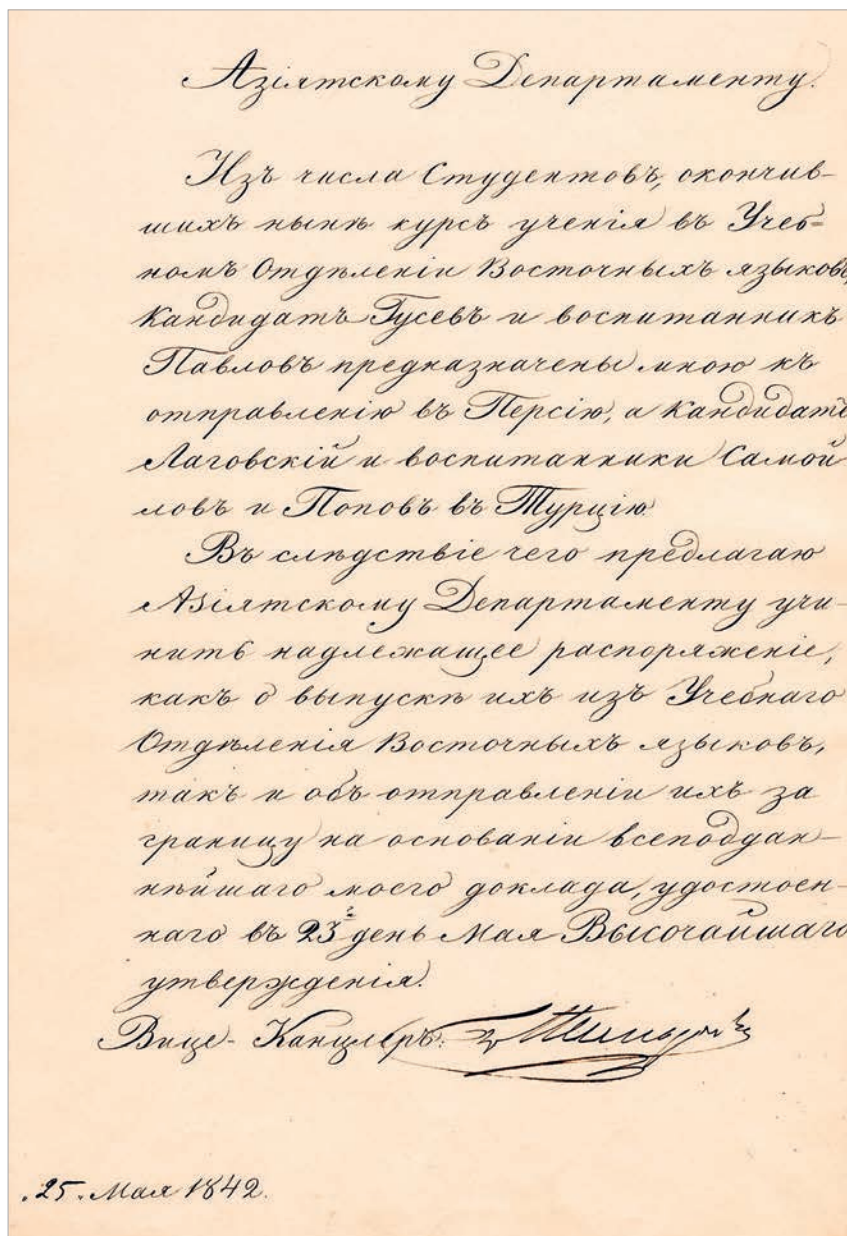 Азіятскому Департаменту.
Изъ числа Студентовъ, окончив-
шихъ нынѣ курсъ ученія въ Учеб=
номъ Отдѣленіи Восточныхъ языковъ,
Кандидатъ Гусевъ и воспитанникъ
Павловъ предназначены мною къ
отправленію въ Персію, а Кандидатъ
Лаговскій и воспитанники Самой
ловъ и Поповъ въ Турцію.
Въ слѣдствіе чего предлагаю
Азіятскому Департаменту учи-
нить надлежащее распоряженіе,
какъ о выпускѣ ихъ изъ Учебнаго
Отдѣленія Восточныхъ языковъ,
такъ и объ отправленіи ихъ за
границу на основаніи всеподдан-
нѣйшаго моего доклада, удостоен-
наго въ 23й день Мая Высочайшаго
утвержденія.
Вице-Канцлеръ:
25. Мая 1842.